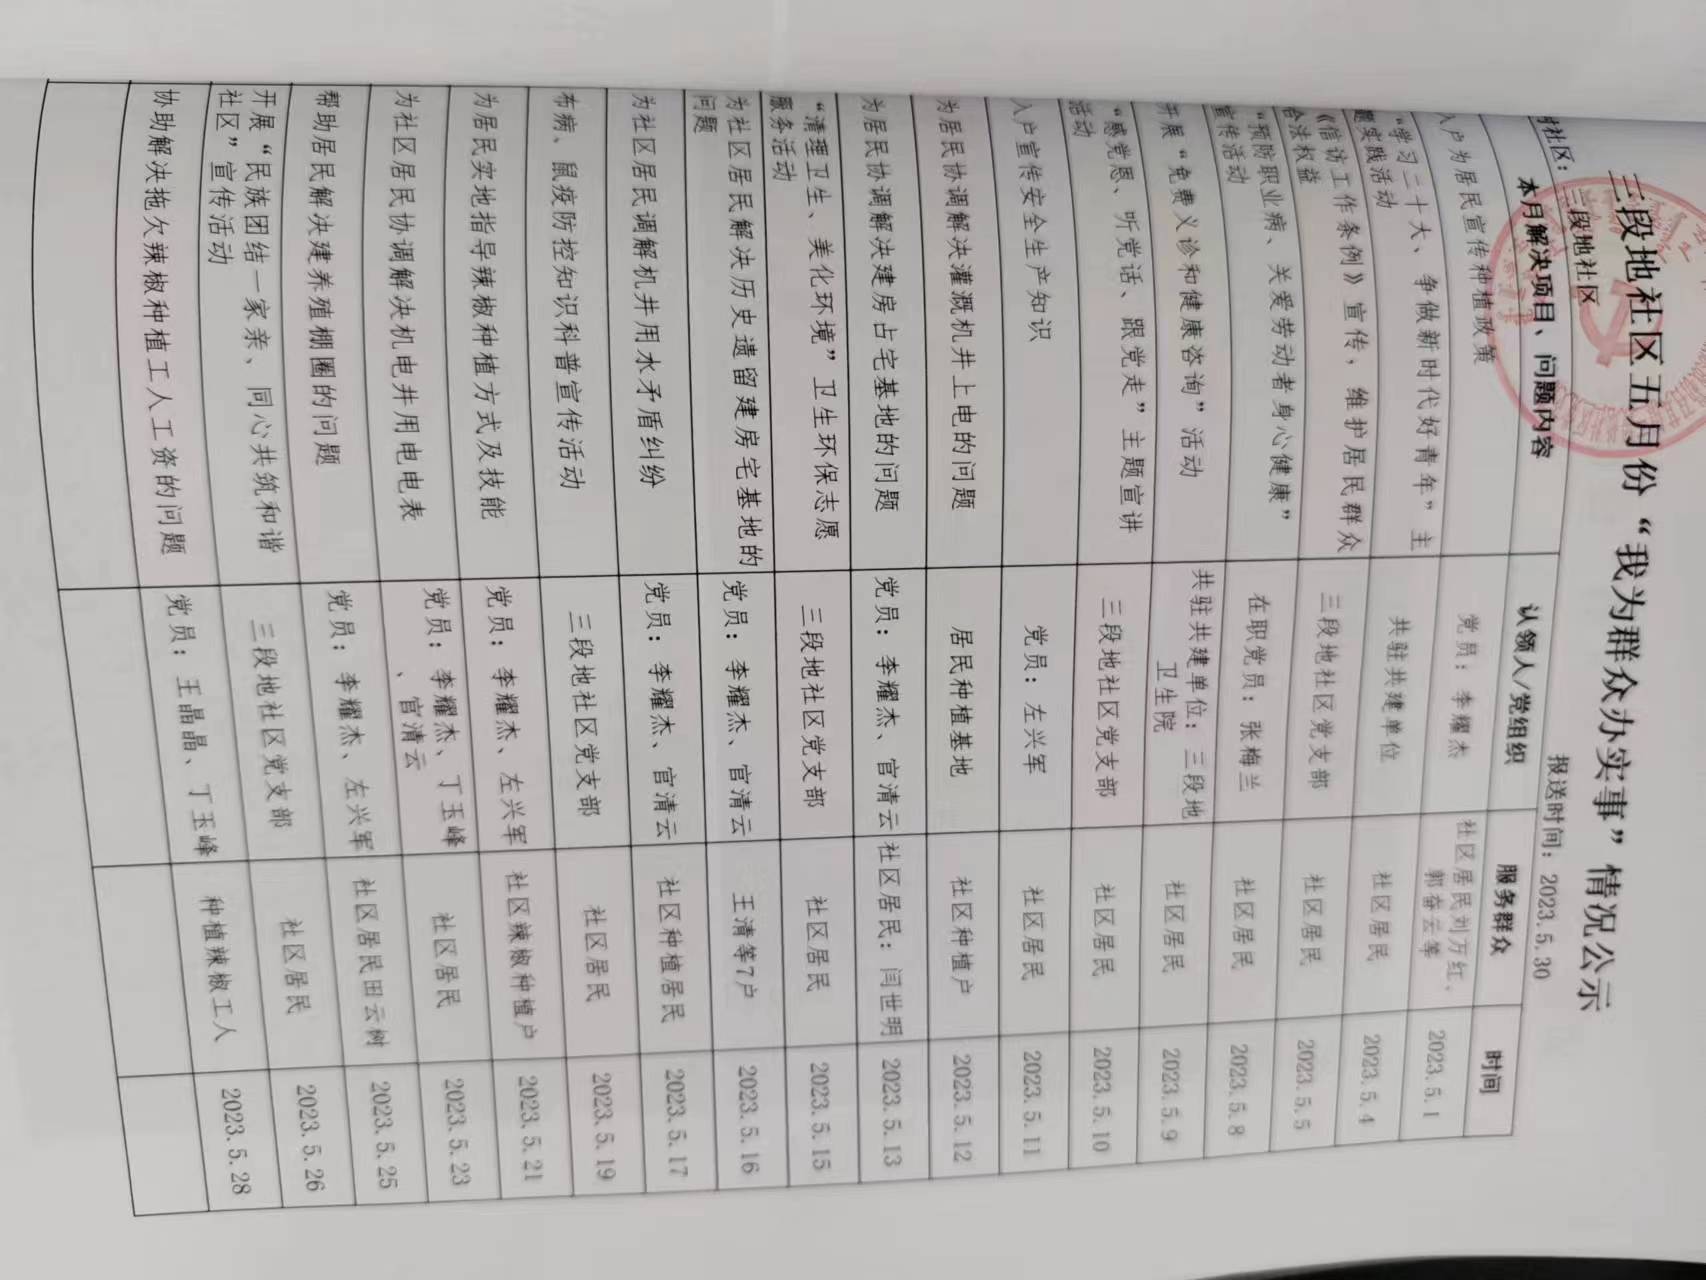 三段地社区五月份“我为群众办实事”情况公示
社区：三段地社区 报送时间：2023.5.30
本月解决项目、问题内容 认领人/党组织 服务群众 时间
入户为居民宣传种植政策 党员：李耀杰 社区居民刘万红、
郭奋云等 2023.5.1
“学习二十大、争做新时代好青年”主
题实践活动 共驻共建单位 社区居民 2023.5.4
《信访工作条例》宣传，维护居民群众
合法权益 三段地社区党支部 社区居民 2023.5.5
“预防职业病、关爱劳动者身心健康”
宣传活动 在职党员：张梅兰 社区居民 2023.5.8
开展“免费义诊和健康咨询”活动 共驻共建单位：三段地
卫生院 社区居民 2023.5.9
“感党恩、听党话、跟党走”主题宣讲
活动 三段地社区党支部 社区居民 2023.5.10
入户宣传安全生产知识 党员：左兴军 社区居民 2023.5.11
为居民协调解决灌溉机井上电的问题 居民种植基地 社区种植户 2023.5.12
为居民协调解决建房占宅基地的问题 党员：李耀杰、官清云 社区居民：闫世明 2023.5.13
“清理卫生、美化环境”卫生环保志愿
服务活动 三段地社区党支部 社区居民 2023.5.15
为社区居民解决历史遗留建房宅基地的
问题 党员：李耀杰、官清云 王清等7户 2023.5.16
为社区居民调解机井用水矛盾纠纷 党员：李耀杰、官清云 社区种植居民 2023.5.17
布病、鼠疫防控知识科普宣传活动 三段地社区党支部 社区居民 2023.5.19
为居民实地指导辣椒种植方式及技能 党员：李耀杰、左兴军 社区辣椒种植户 2023.5.21
为社区居民协调解决机电井用电电表 党员：李耀杰、丁玉峰
、官清云 社区居民 2023.5.23
帮助居民解决建养殖棚圈的问题 党员：李耀杰、左兴军 社区居民田云树 2023.5.25
开展“民族团结一家亲、同心共筑和谐
社区”宣传活动 三段地社区党支部 社区居民 2023.5.26
协助解决拖欠辣椒种植工人工资的问题 党员：王晶晶、丁玉峰 种植辣椒工人 2023.5.28